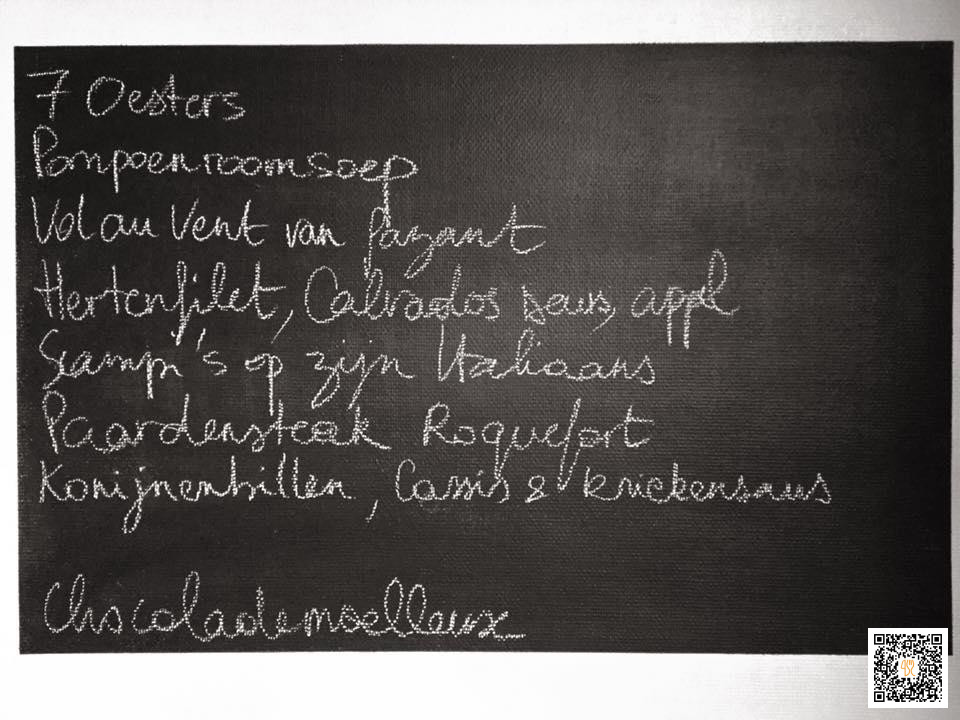 7 Oesters
Pompoenroomsoep
Vol au Vent van fazant
Hertenfilet, Calvados saus, appl
Scampi's op zijn Italiaans
Paardensteak Roquefort
Konijnenbillen, Cassis & kriekensaus
Chocolademoelleux